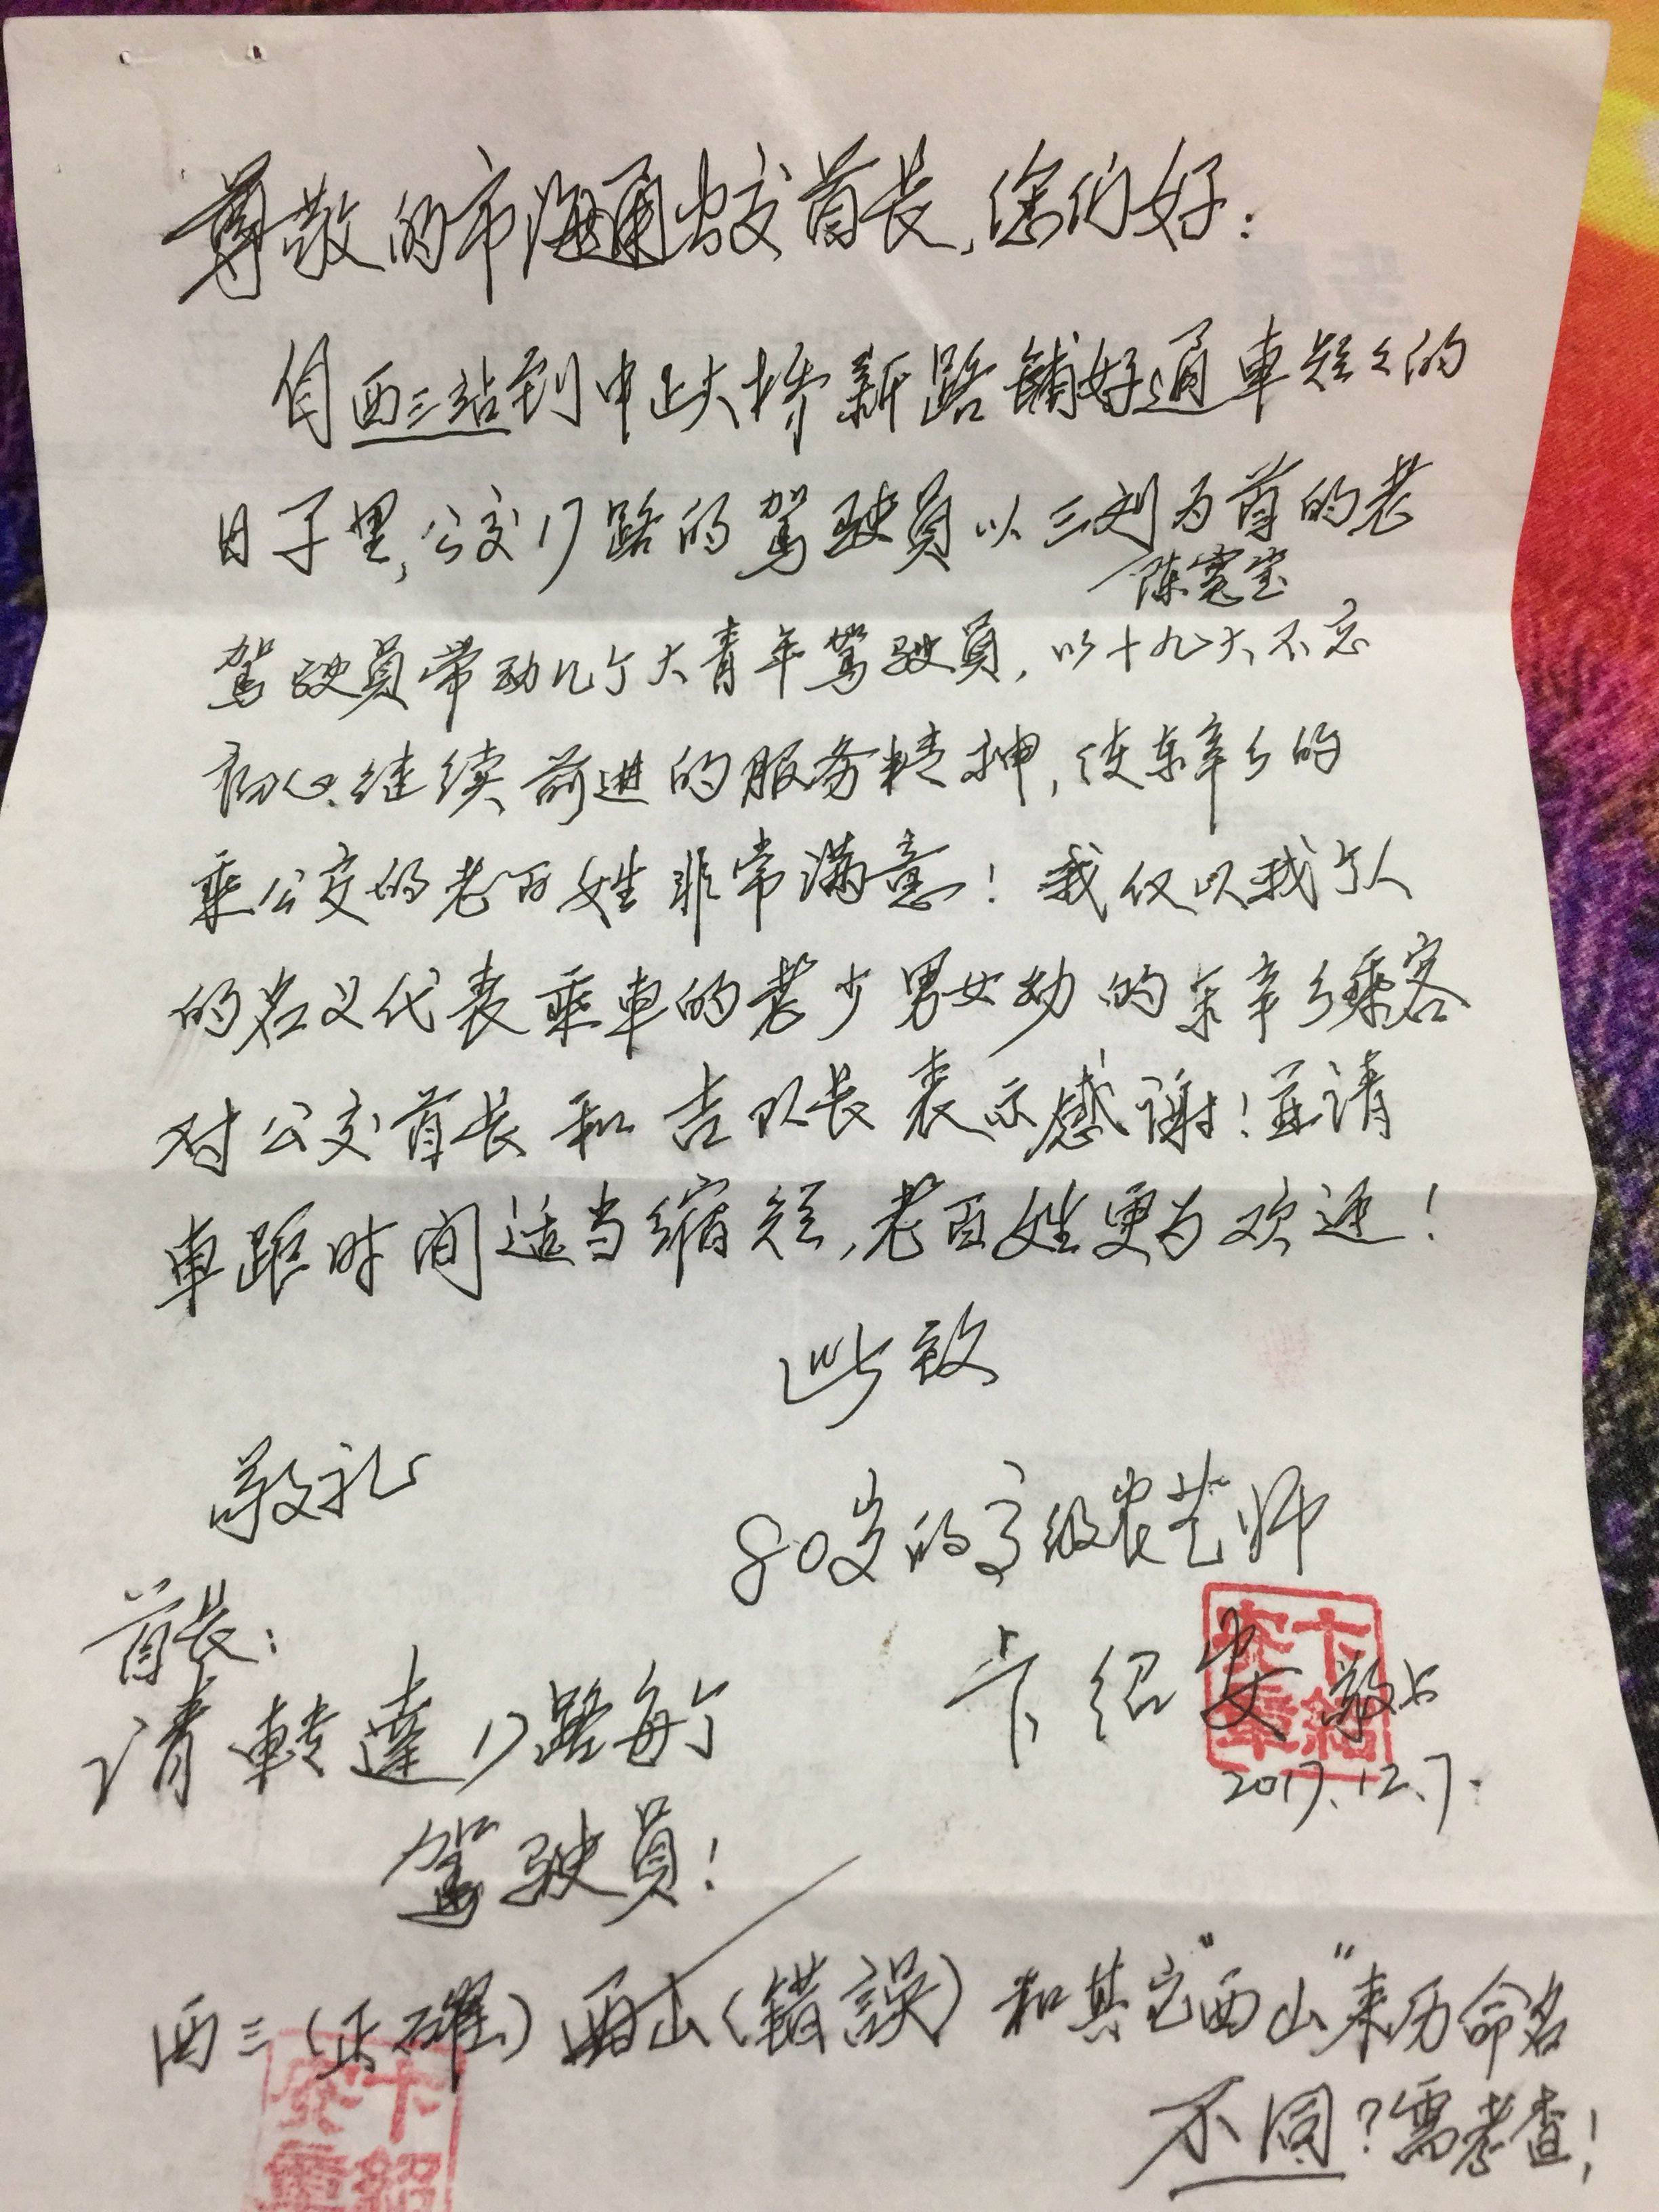 尊敬的市海通公交首长,您们好:
自西三站到中正大桥新路铺好通車短々的
日子里,公交17路的驾驶员以三刘为首的老
陈宽宝
驾驶员带动几个大青年驾驶员,以十九大不忘
初心、继续前进的服务精神,使东辛乡的
乘公交的老百姓非常满意!我仅以我个人
的名义代表乘車的老少男女幼的东辛乡乘客
对公交首长和吉队长表示感谢!並请
車距时间适当缩短,老百姓更为欢迎!
此致
敬礼
80岁的高级农艺师
卞绍安敬上
2017.12.7.
首长:
请転達17路每个
驾驶员!
西三(正確)西山(错誤)和其它"西山"来历命名
不同?需考查!